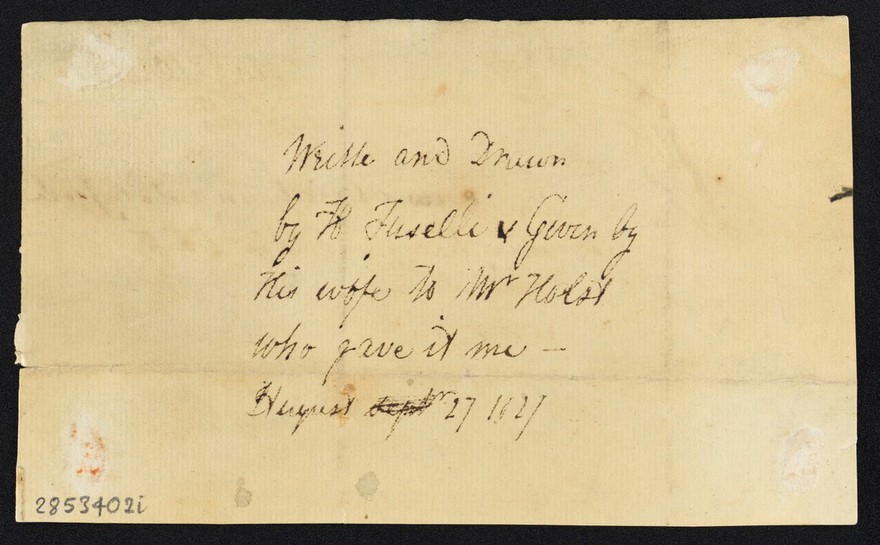 Writte and Drawn
by H Fuselli & Given by
His wife to Mr Holst
who gave it me —
August Septr 27 1827
2853402i